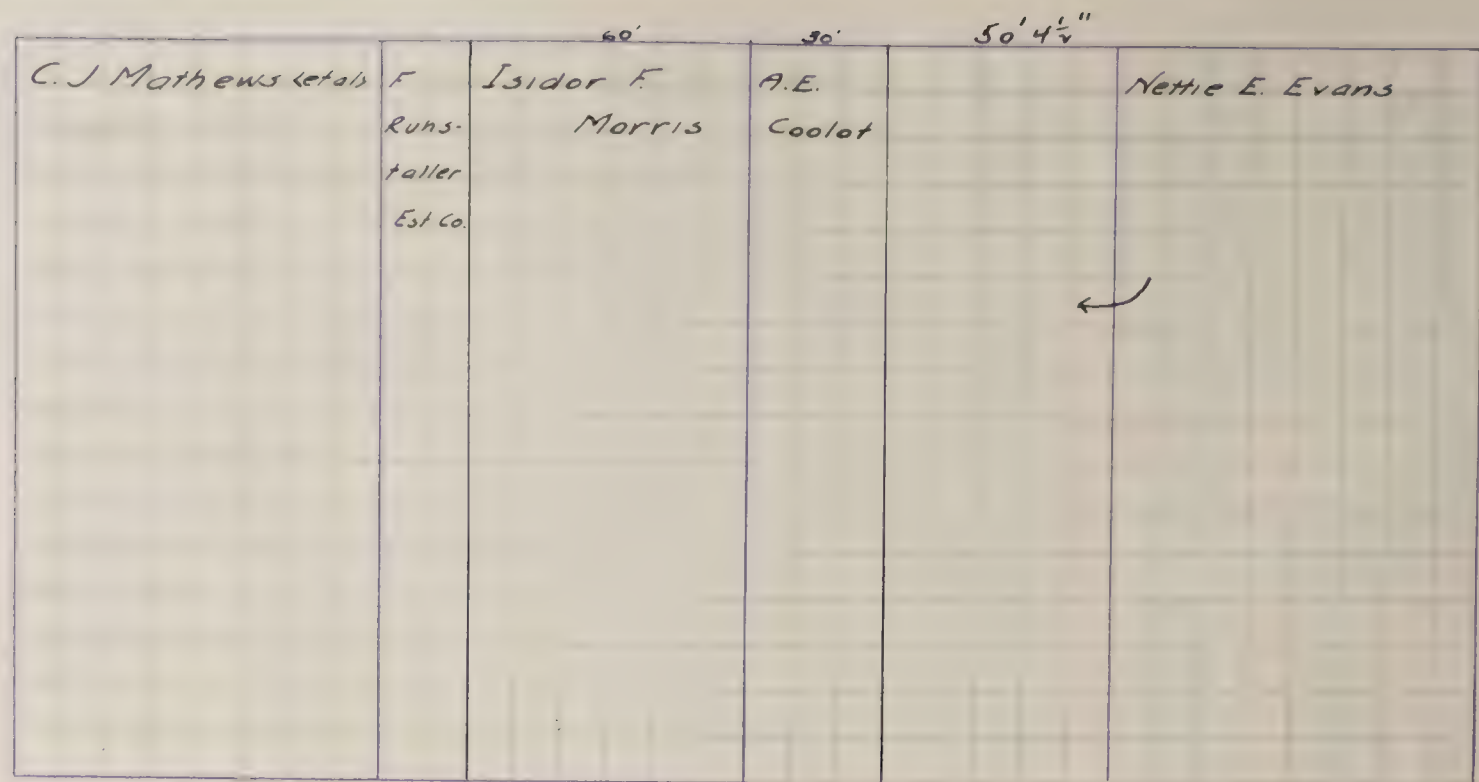 60'
30'
50' 4½"
C. J Mathews &etals
F
Runs-
taller
Est Co.
Isidor F.
Morris
A.E.
Coolot
Nettie E. Evans